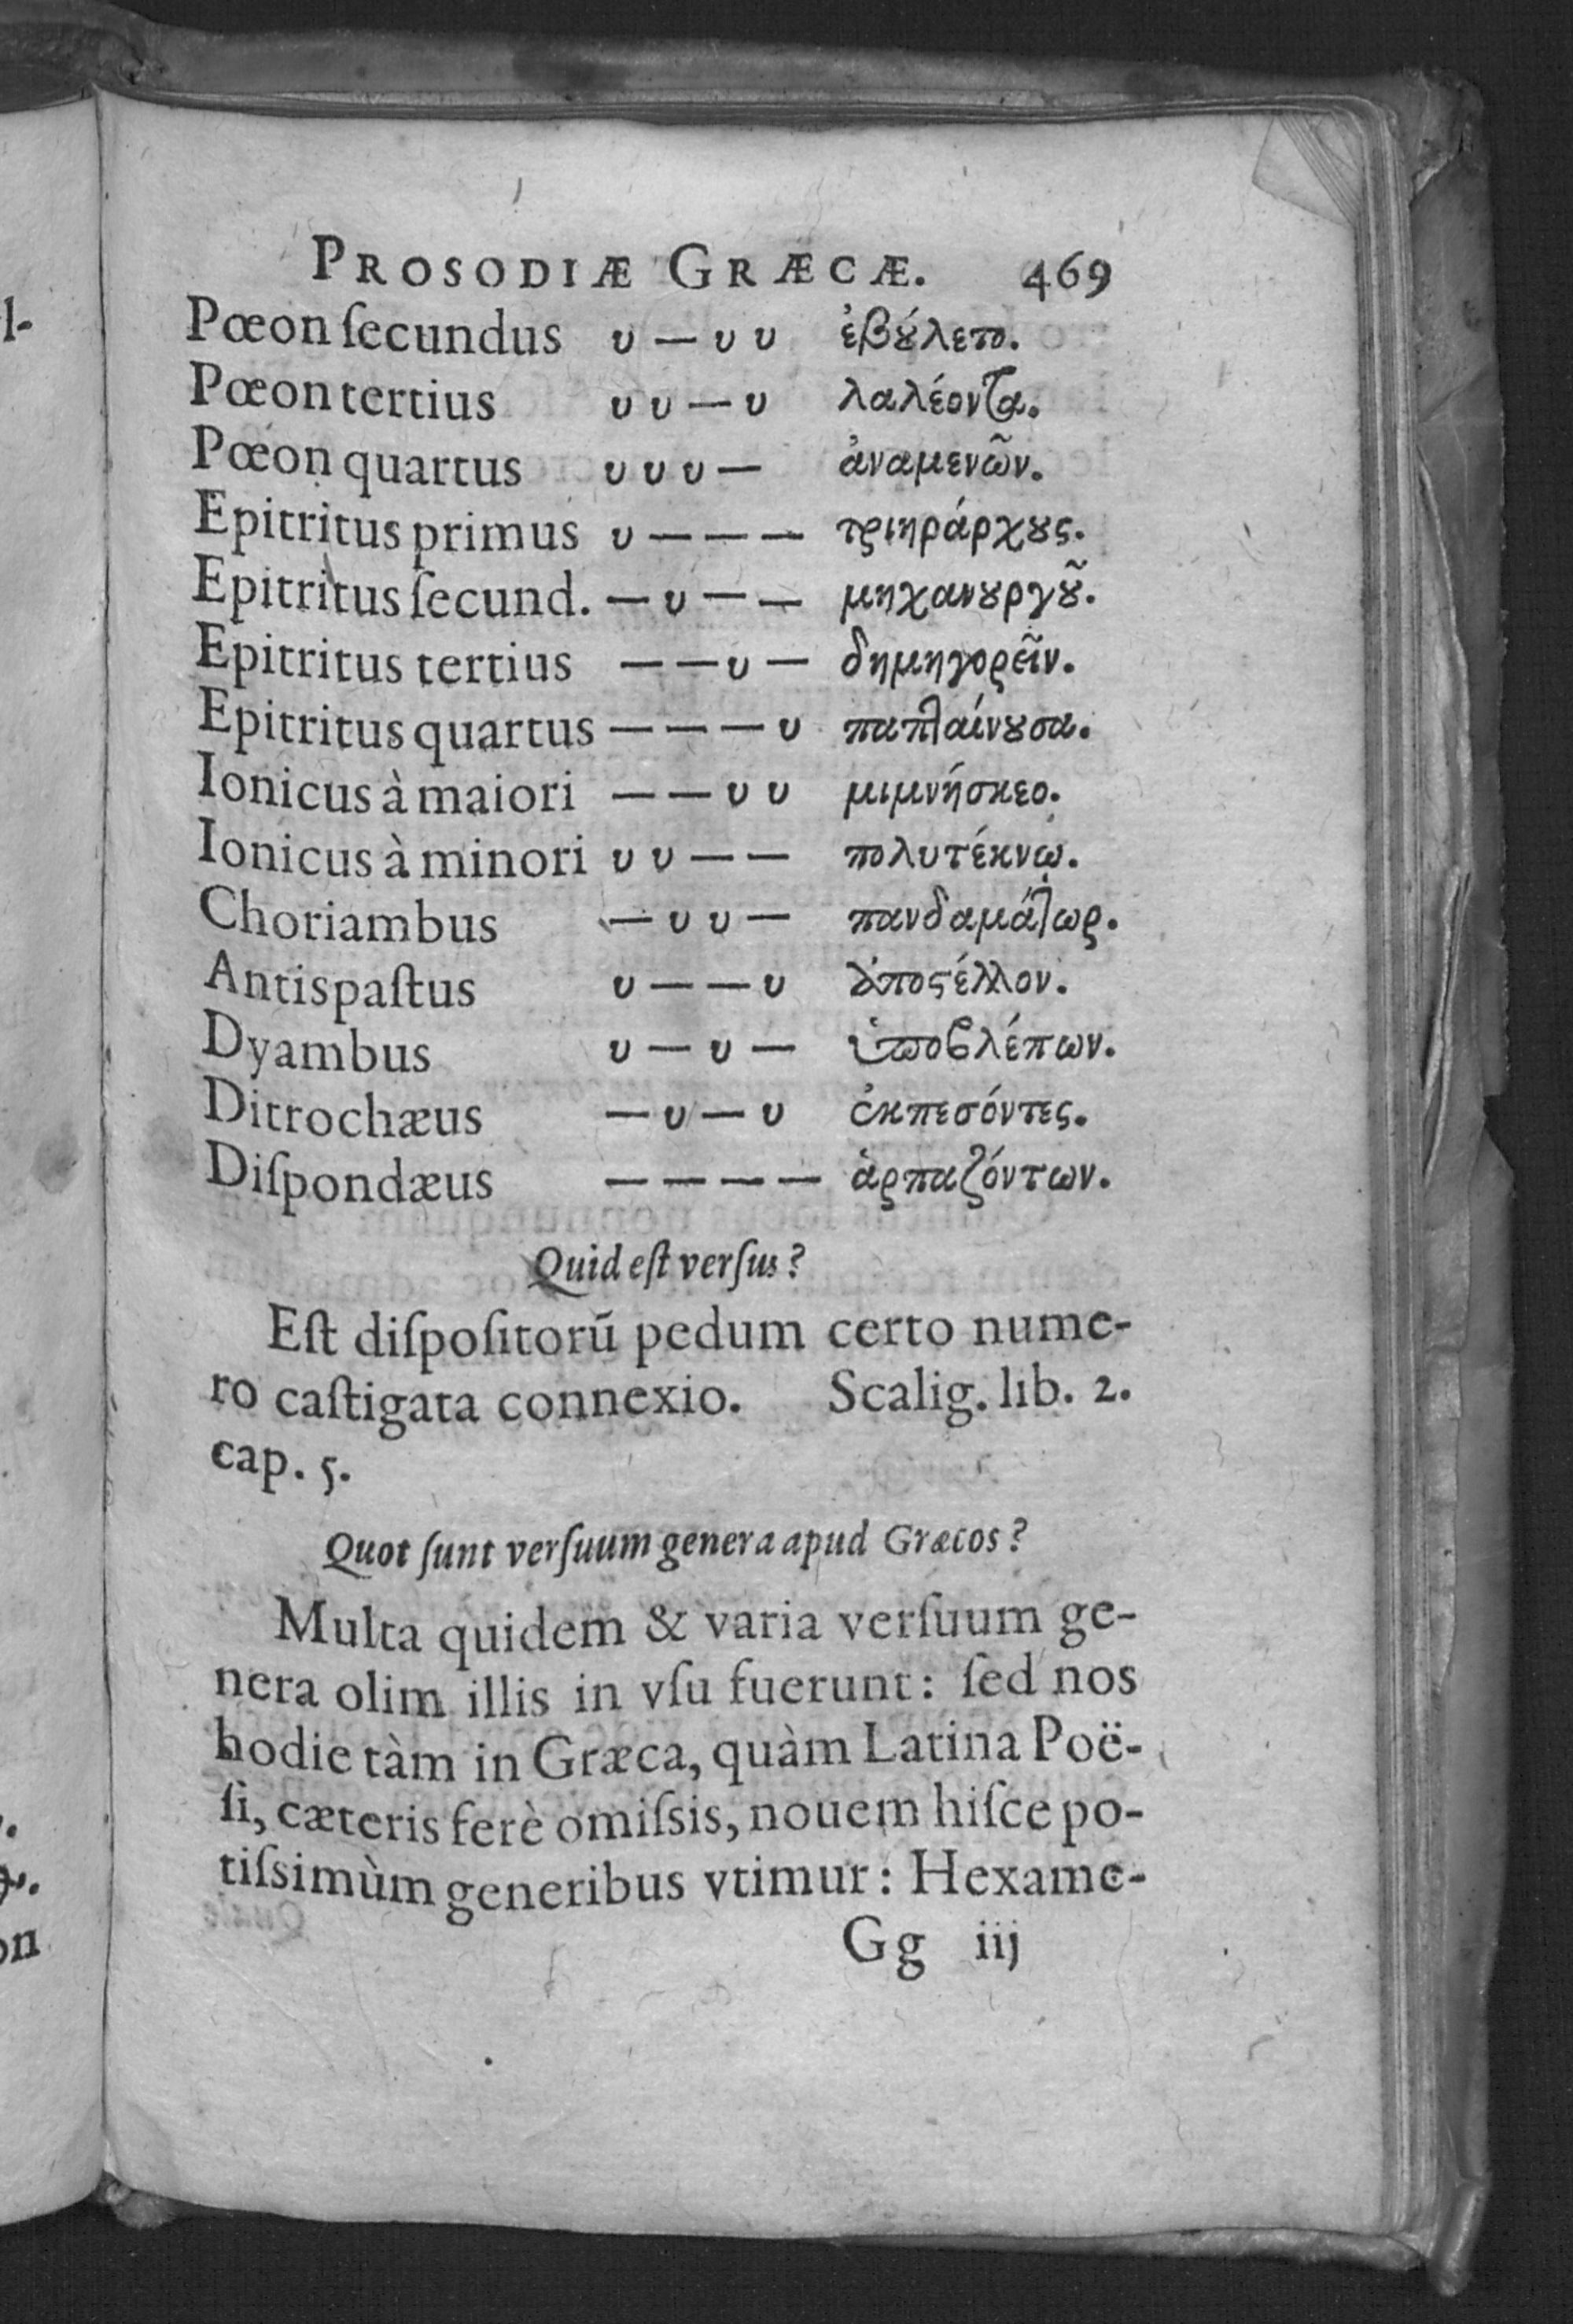 PROSODIÆ GRÆCÆ. 469
Pœon ſecundus υ — υ υ ἐβȣ́λετο.
Pœon tertius υ υ — υ λαλέοντα.
Pœon quartus υ υ υ — ἀναμενῶν.
Epitritus primus υ — — — τριηράρχȣς.
Epitritus ſecund. — υ — — μηχανȣργȣ͂.
Epitritus tertius — — υ — δημηγορεῖν.
Epitritus quartus — — — υ παπταίνȣσα.
Ionicus à maiori — — υ υ μιμνήσκεο.
Ionicus à minori υ υ — — πολυτέκνῳ.
Choriambus — υ υ — πανδαμάτωρ.
Antispaſtus υ — — υ ἀποϛέλλον.
Dyambus υ — υ — ὑποβλέπων.
Ditrochæus — υ — υ ἐκπεσόντες.
Diſpondæus — — — — ἁρπαζόντων.
Quid eſt verſus?
Eſt diſpoſitorū pedum certo nume-
ro caſtigata connexio. Scalig. lib. 2.
cap. 5.
Quot ſunt verſuum genera apud Græcos?
Multa quidem & varia verſuum ge-
nera olim illis in vſu fuerunt: ſed nos
hodie tàm in Græca, quàm Latina Poë-
ſi, cæteris ferè omiſsis, nouem hiſce po-
tiſsimùm generibus vtimur: Hexame-
Gg iij